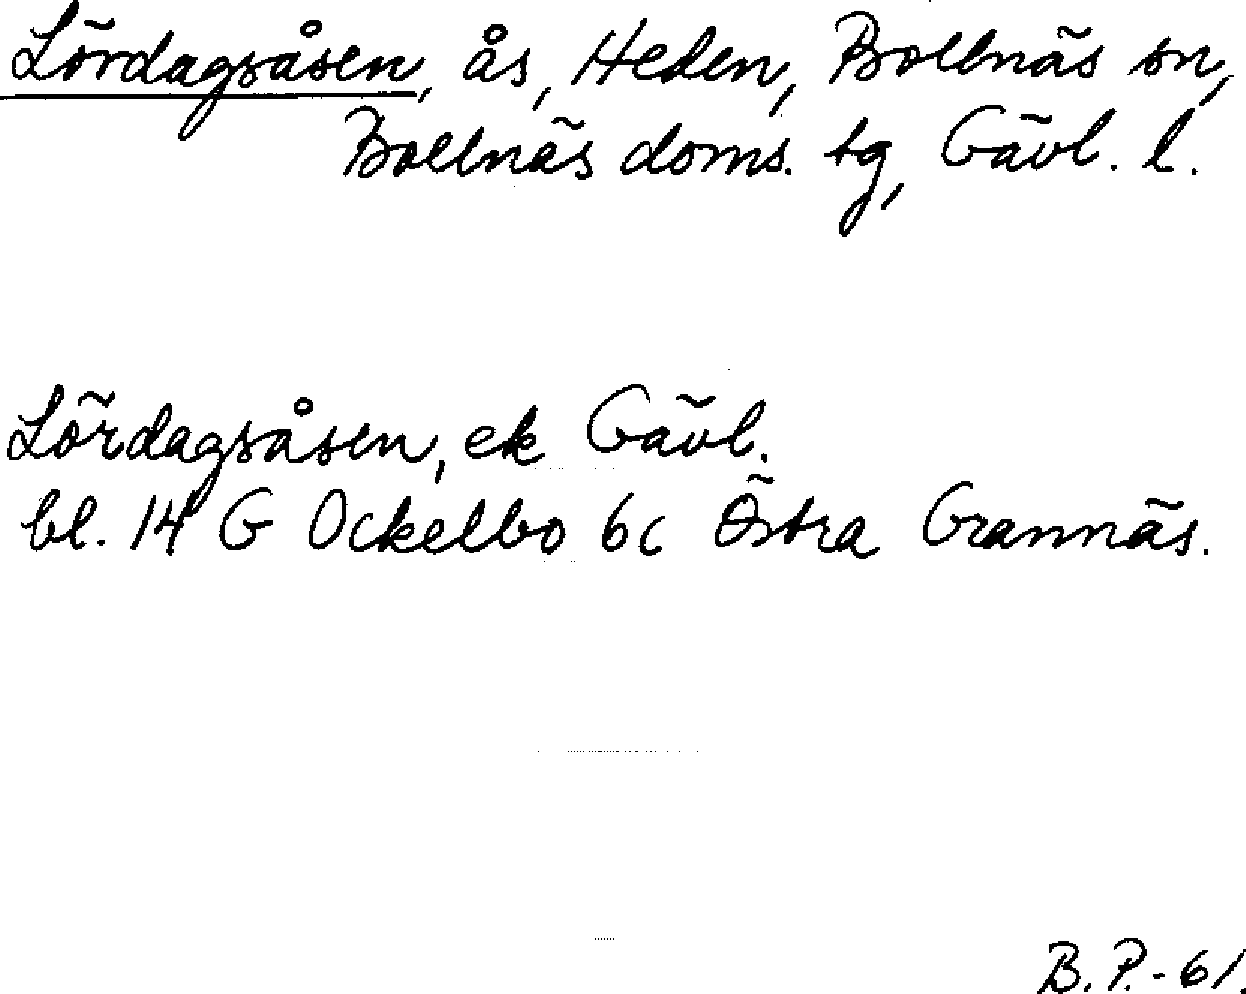 Lördagsåsen, ås, Heden, Bollnäs sn,
Bollnäs doms. tg, Gävl. l.
Lördagsåsen, ek Gävl.
bl. 14 G Ockelbo 6c Östra Grannäs.
B.P.-61.